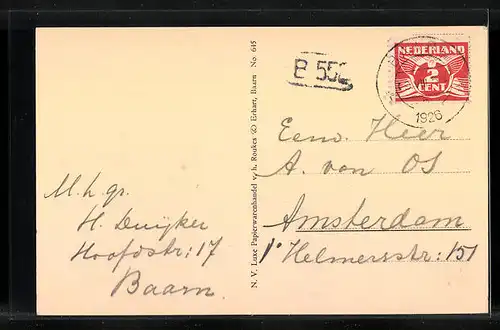 M. h. gr.
H. Duijker
Hoofdstr: 17
Baarn
N. V. Luxe Papierwarenhandel v. h. Roukes & Erhart, Baarn No 645
B 55
NEDERLAND
½
CENT
1926
Eenv. Heer
A. von OS
Amsterdam
1e Helmersstr: 151